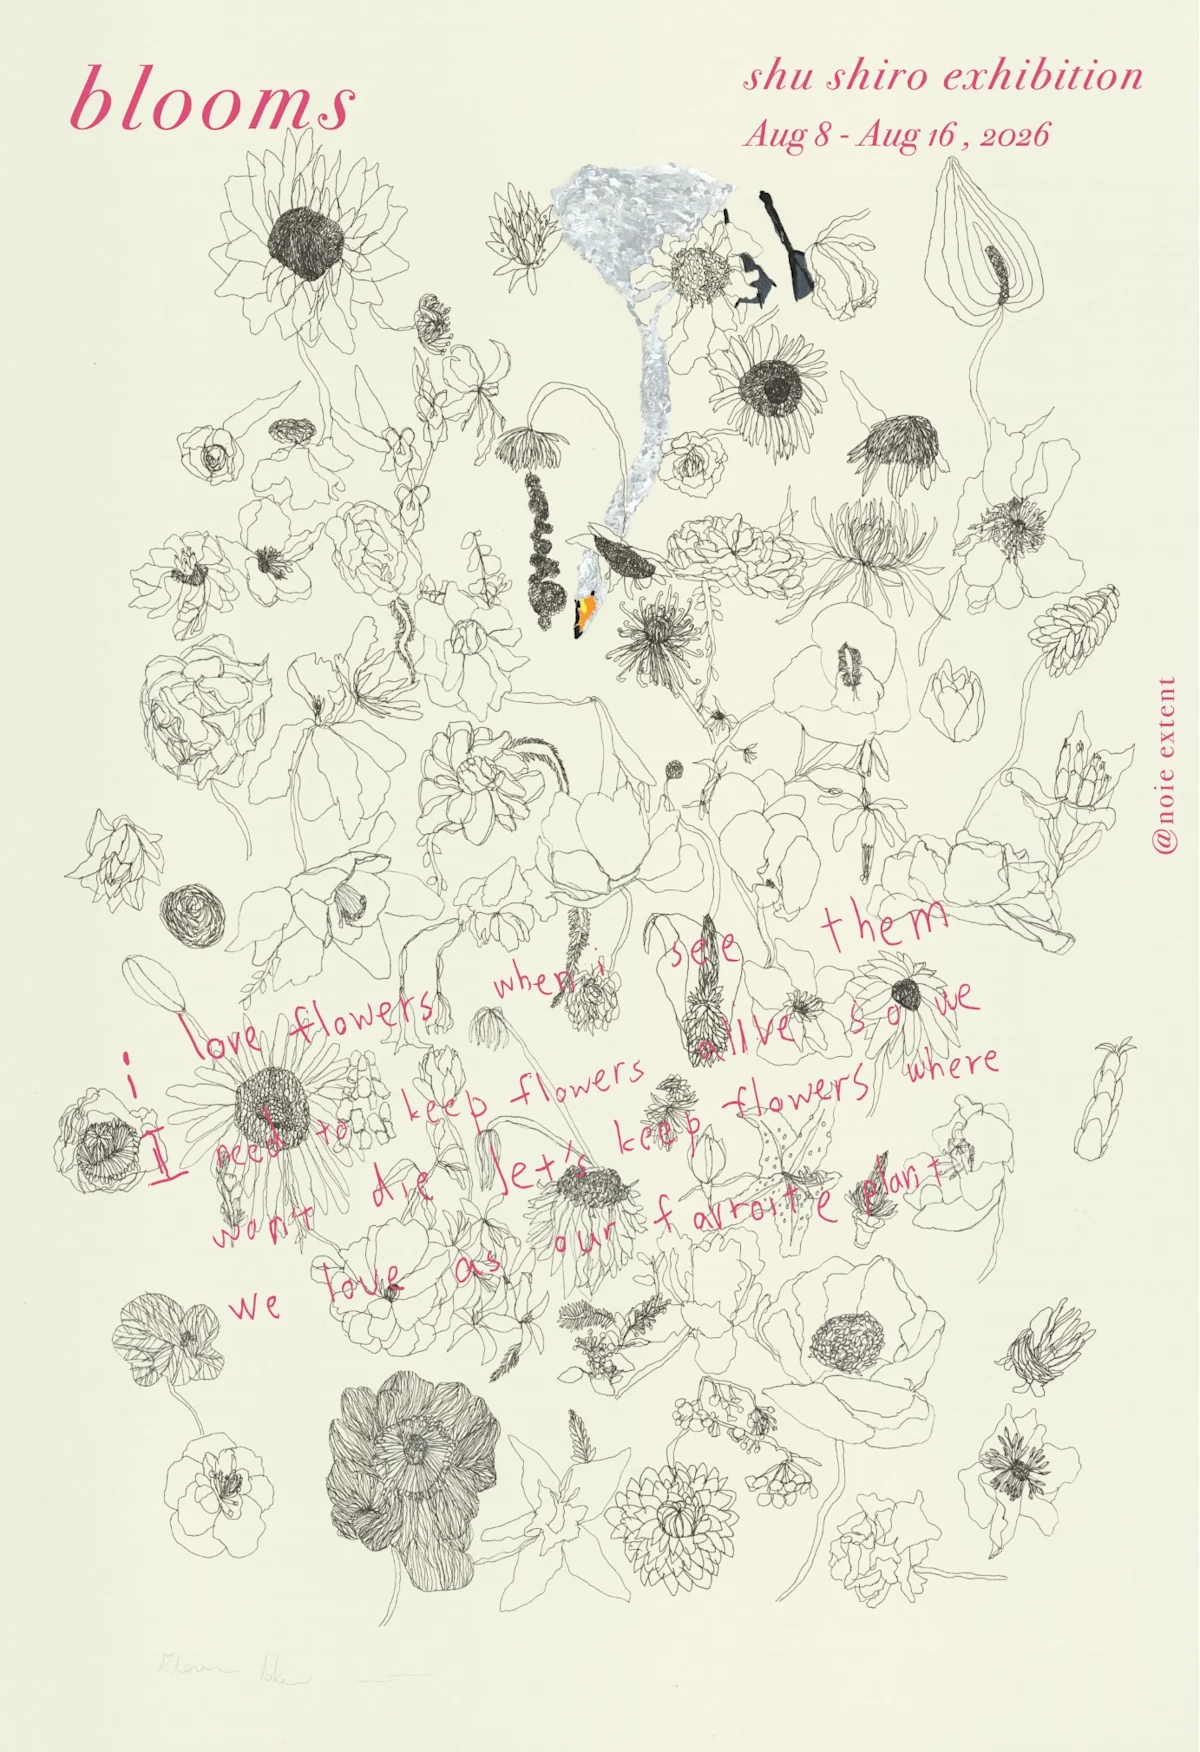 blooms
shu shiro exhibition
Aug 8 - Aug 16 , 2026
@noie extent
i love flowers when i see them
I need to keep flowers alive so we
won't die let's keep flowers where
we love as our favroite plant